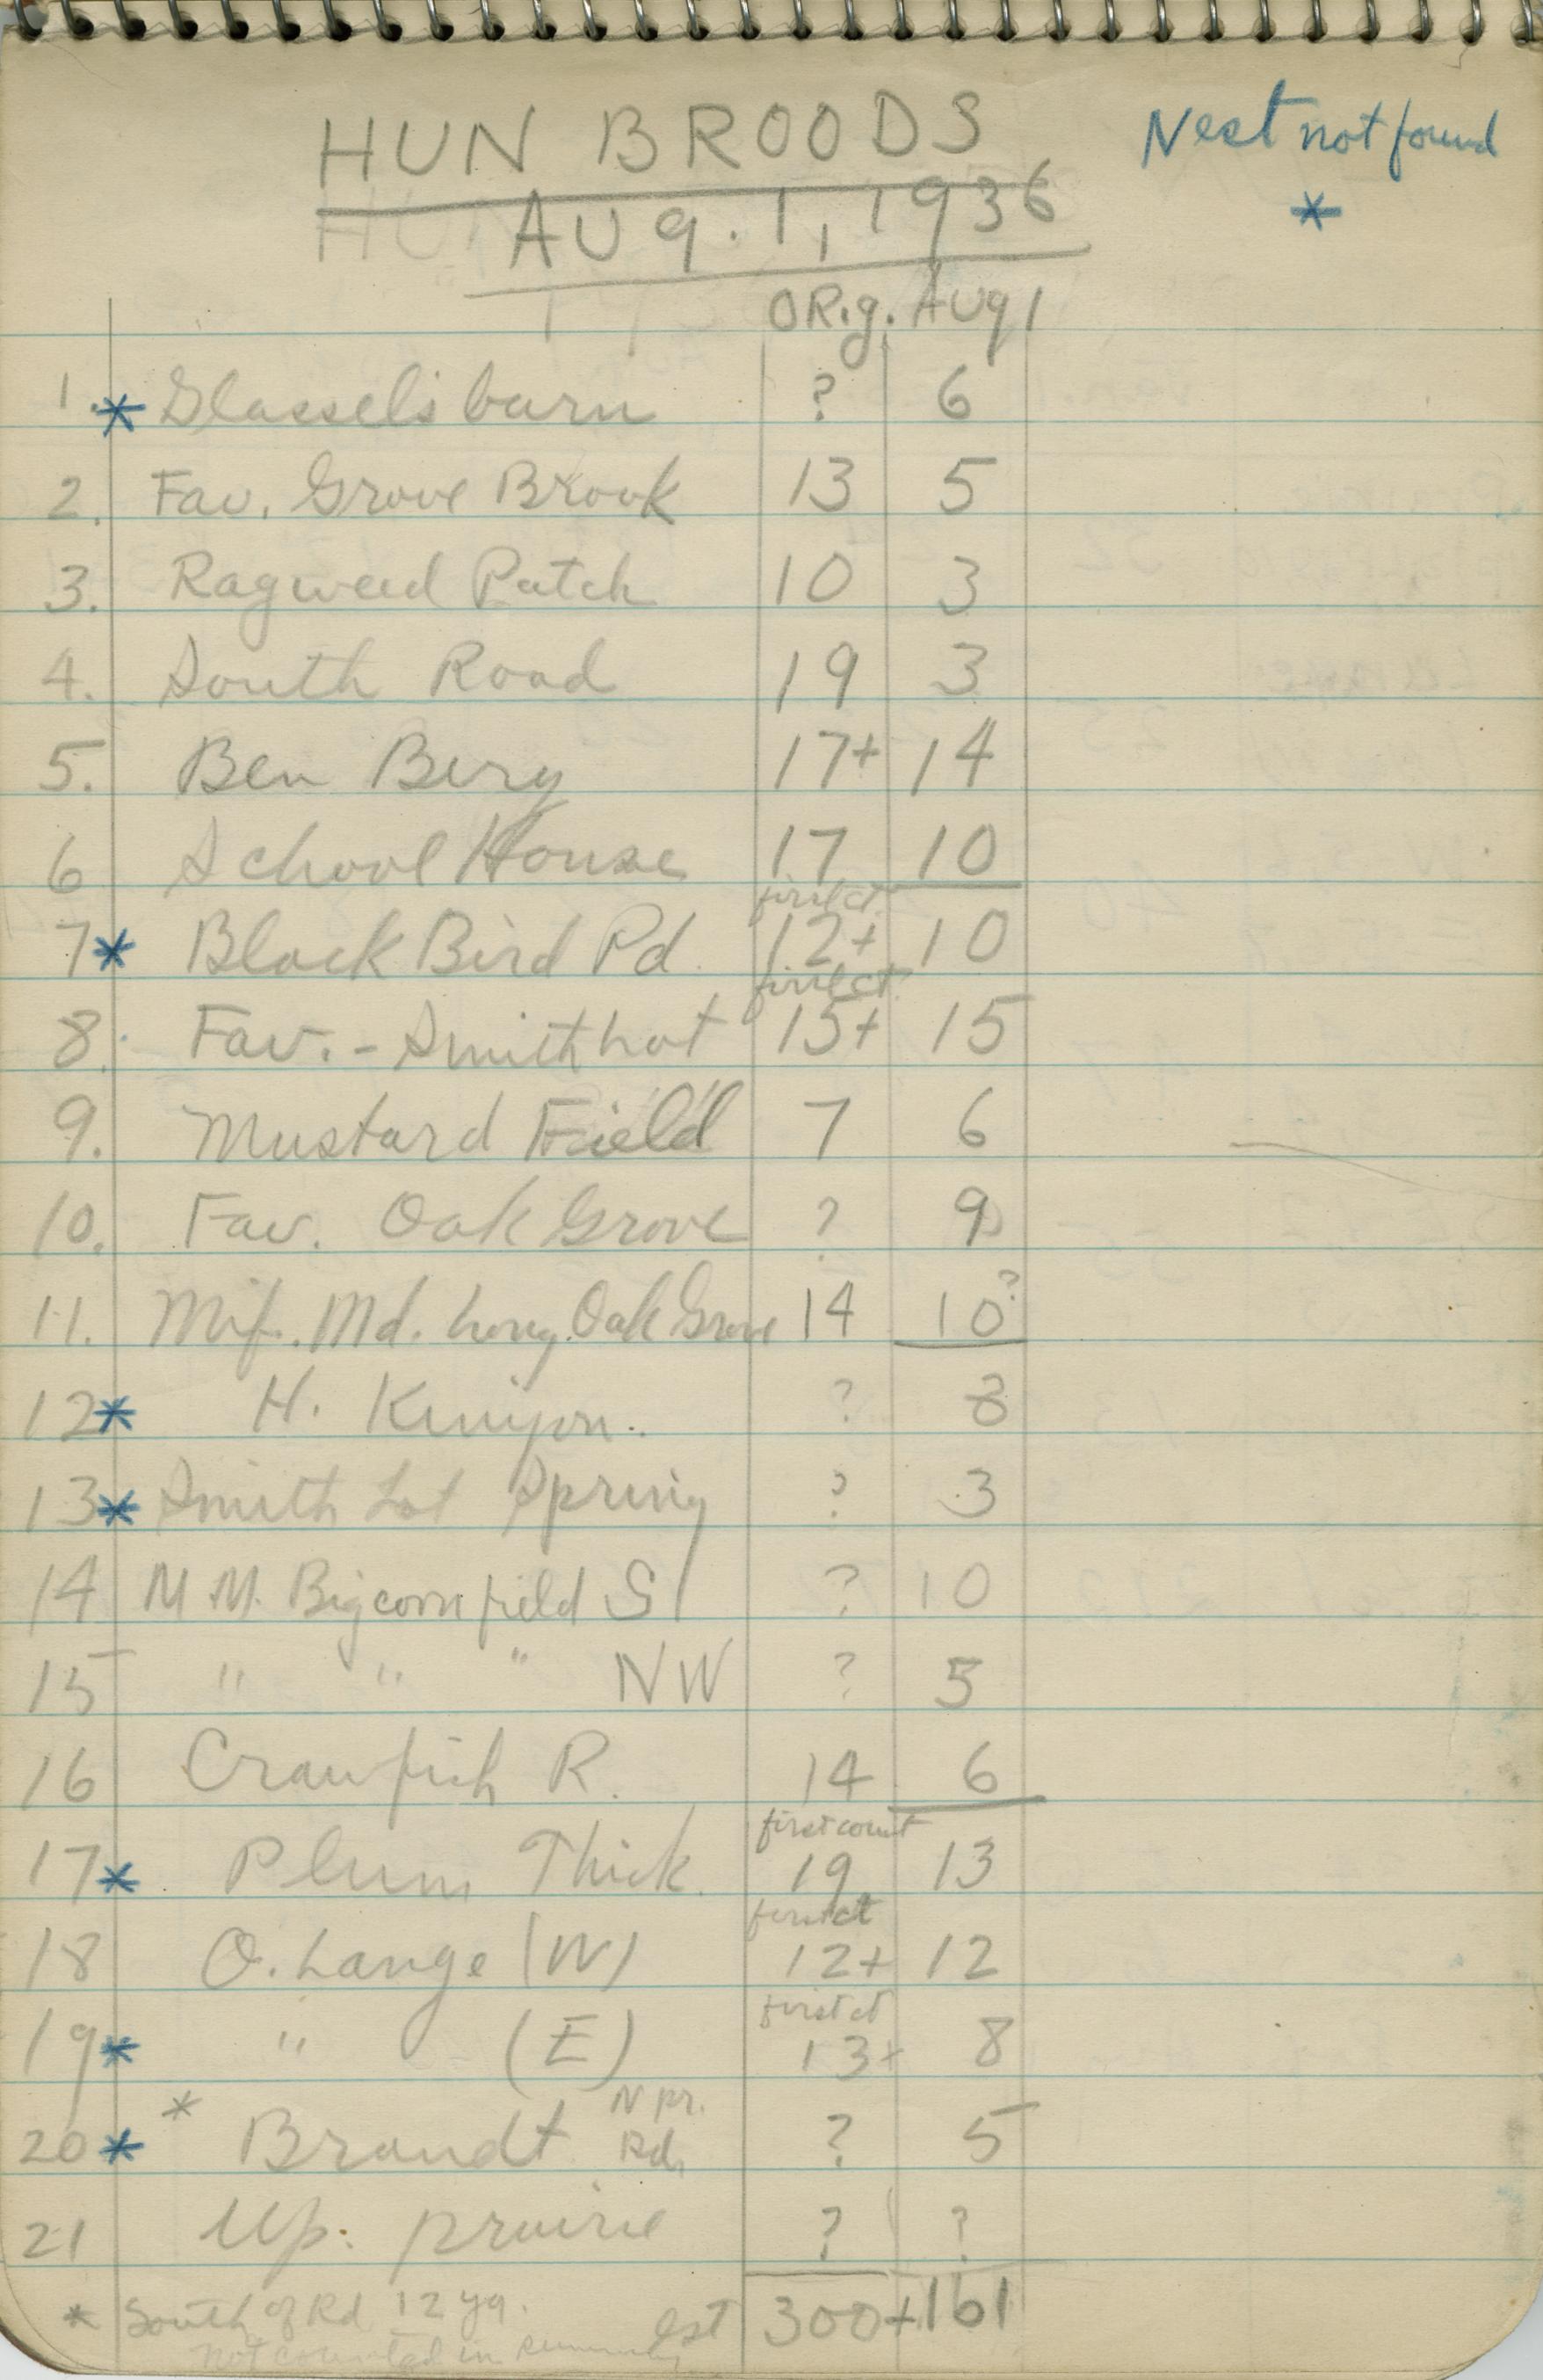 HUN BROODS
Nest not found
*
AUg. 1, 1936
ORig. AUg 1
1. * Glassel's barn ? 6
2. Fav. Grove Brook 13 5
3. Ragweed Patch 10 3
4. South Road 19 3
5. Ben Berg 17+ 14
6 School House 17 10
first ct.
7 * Black Bird Pd. 12+ 10
first ct.
8. Fav. - Smith Lot 15+ 15
9. Mustard Field 7 6
10. Fav. Oak Grove ? 9
11. Mif. Md. Long. Oak Grove 14 10?
12 * H. Kinyon. ? 8
13 * Smith Lot Spring ? 3
14 M M. Big corn field S ? 10
15 " " " NW ? 5
16 Crawfish R. 14 6
first count
17 * Plum Thick. 19 13
first ct
18 O. Lange (W) 12+ 12
first ct
19 * " (E) 13+ 8
N pr.
20 * * Brandt Rd. ? 5
21 Up. prairie ? ?
* South of Rd 12 yg. est 300+ 161
Not counted in summary